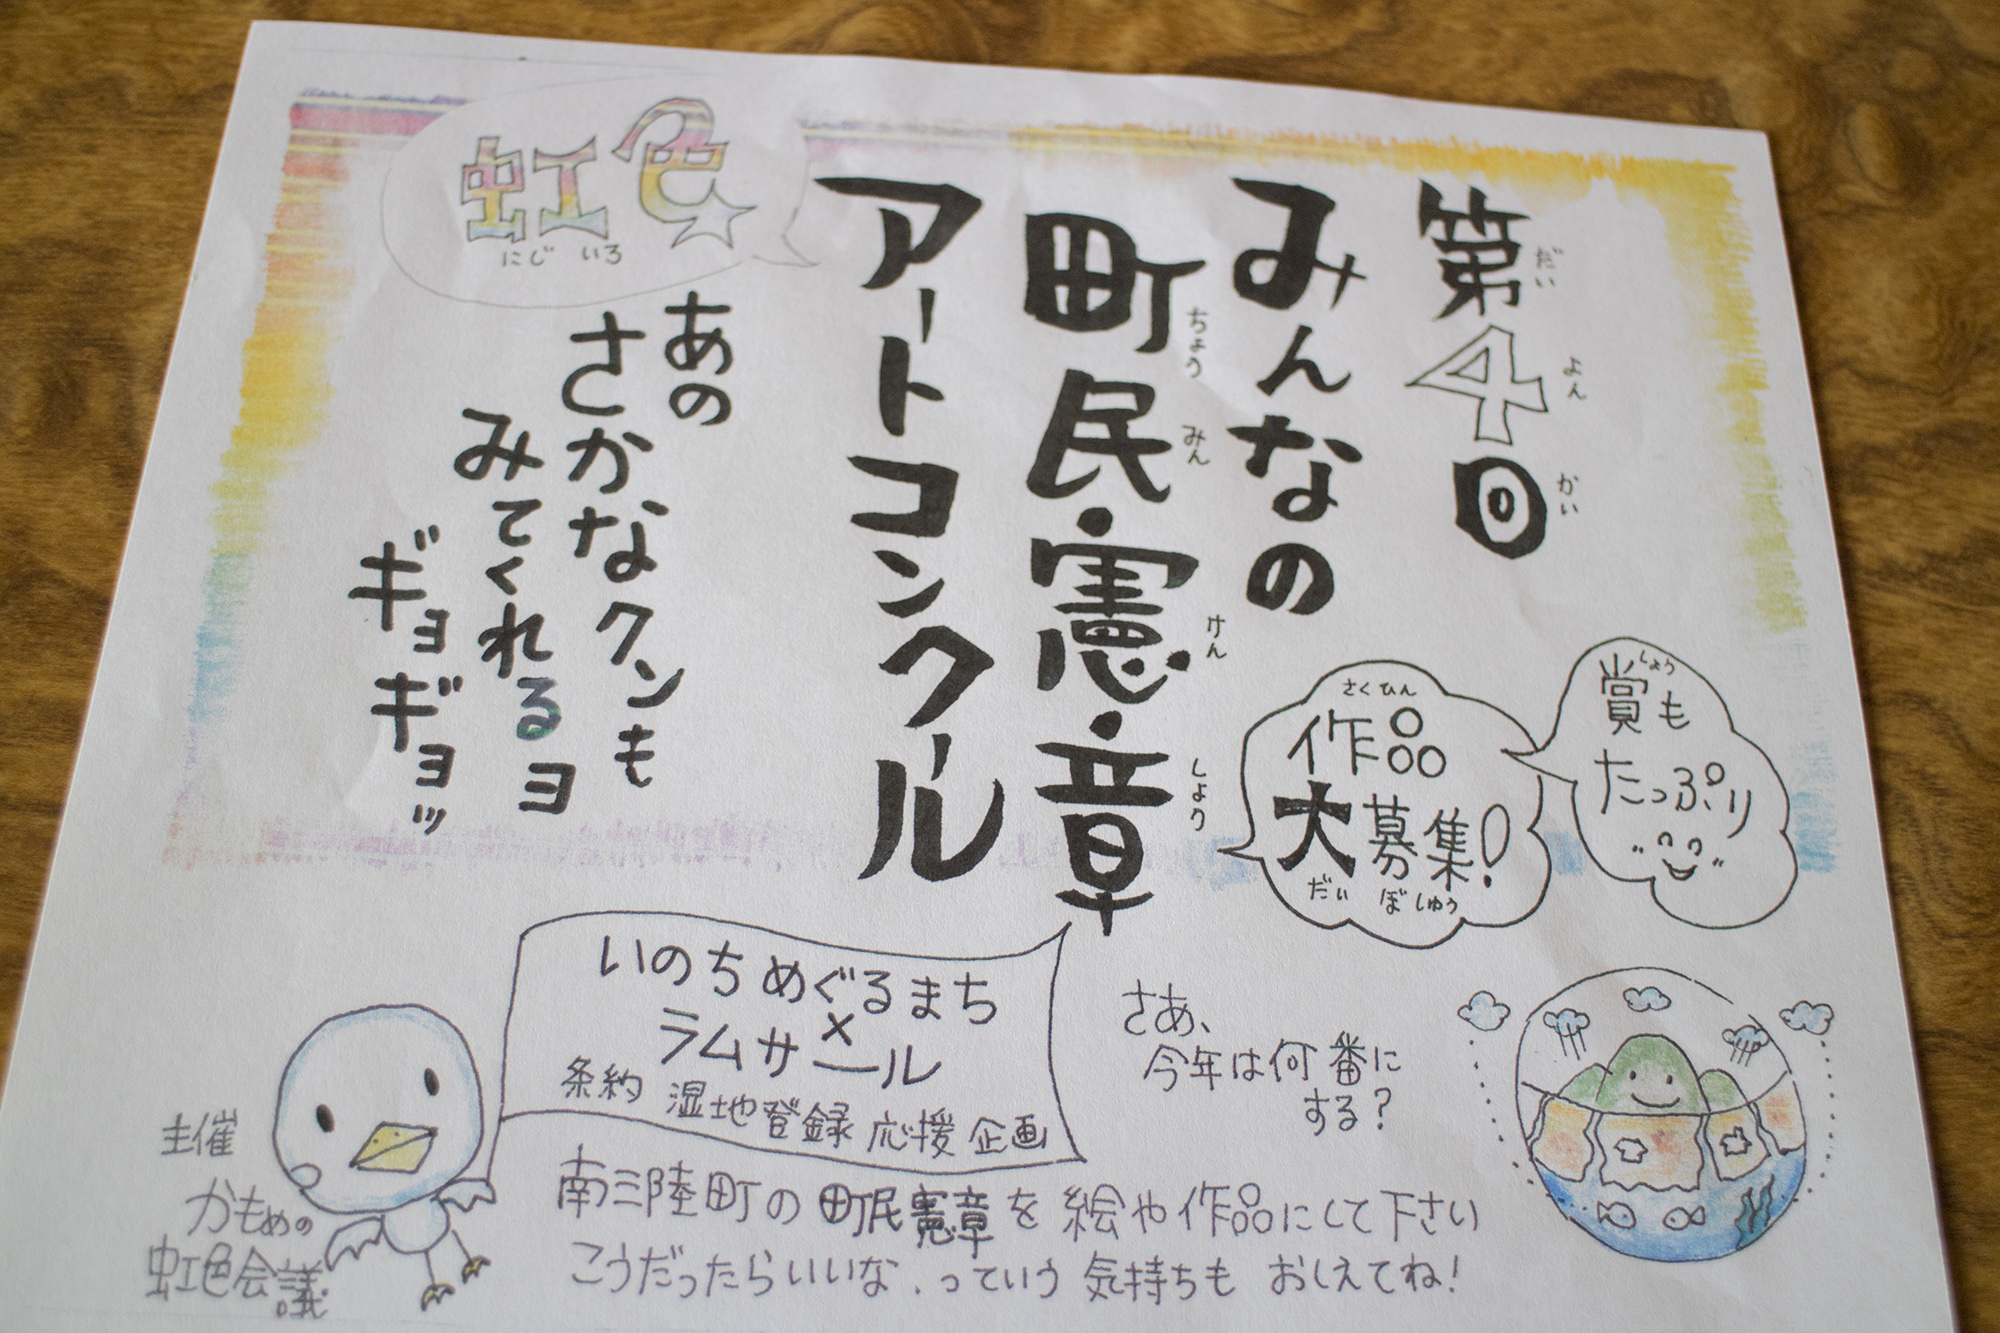 第4回
だい よん かい
みんなの
町民憲章
ちょう みん けん しょう
アートコンクール
虹色
にじ いろ
あの
さかなクンも
みてくれるヨ
ギョギョッ
賞も
しょう
たっぷり
さくひん
作品
大募集!
だい ぼしゅう
いのちめぐるまち
×
ラムサール
条約 湿地登録 応援 企画
さあ、
今年は何番に
する?
主催
かもめの
虹色会議
南三陸町の町民憲章を絵や作品にして下さい
こうだったらいいな、っていう気持ちもおしえてね!